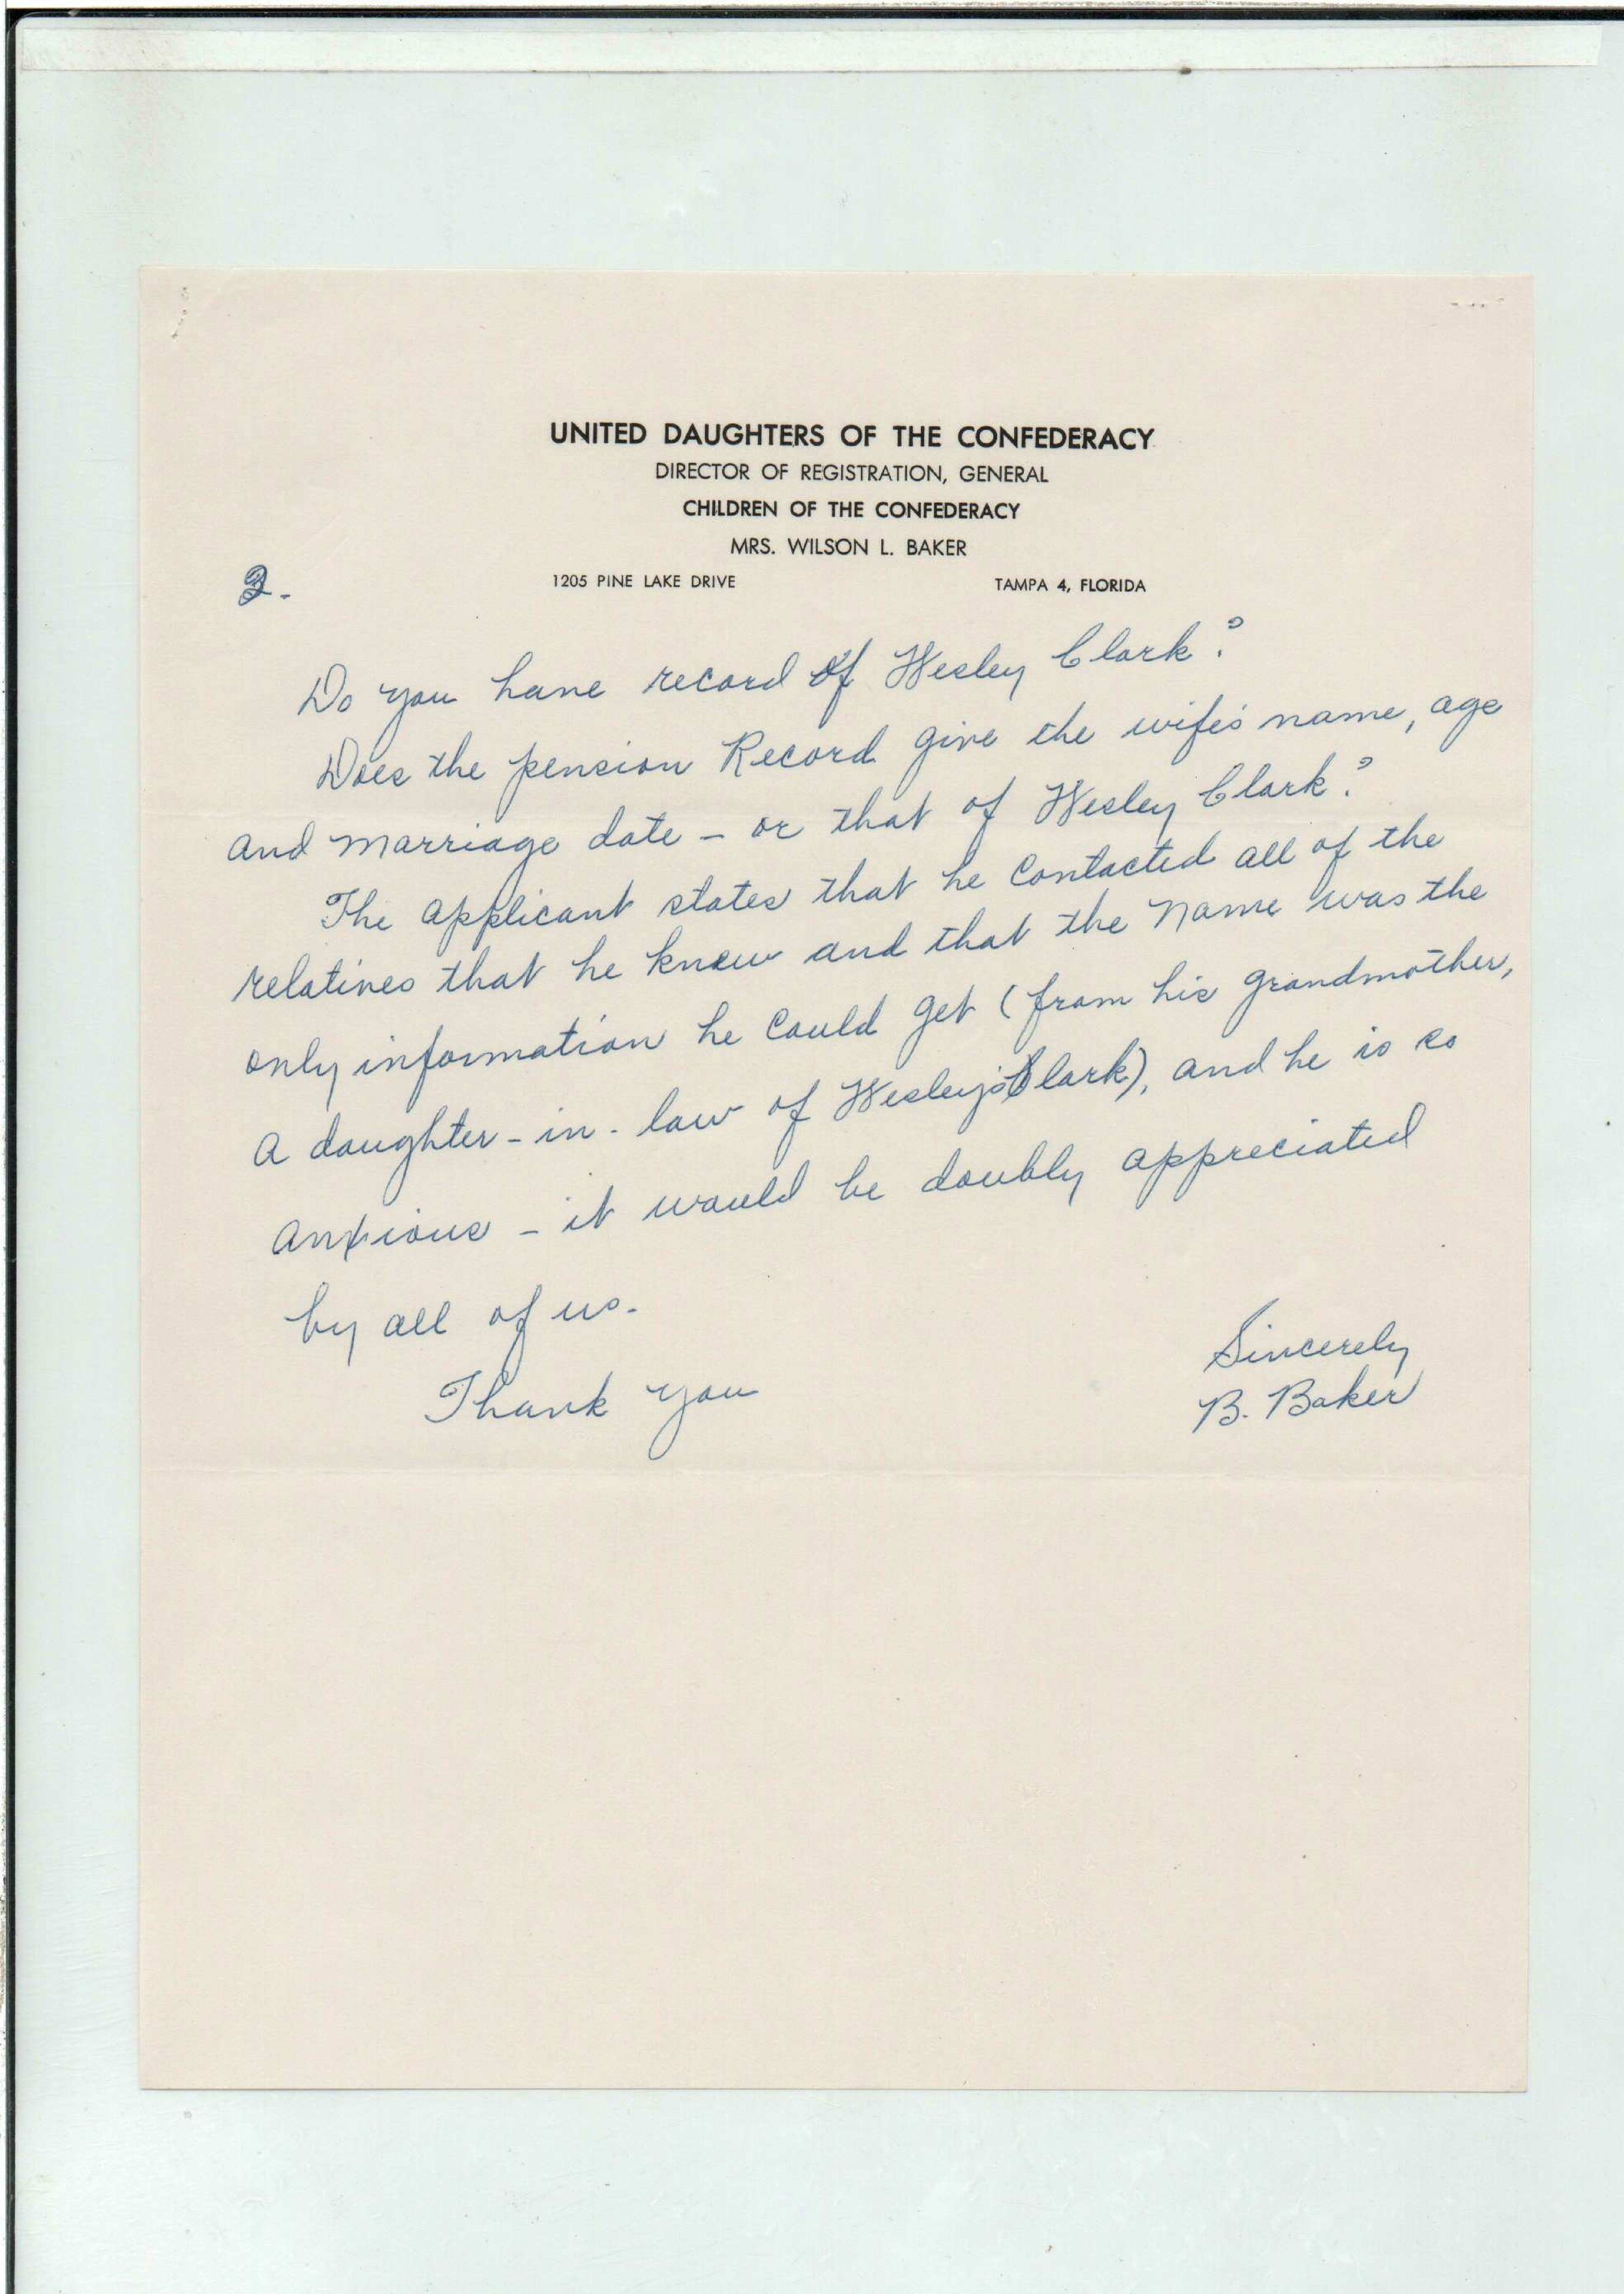 UNITED DAUGHTERS OF THE CONFEDERACY
DIRECTOR OF REGISTRATION, GENERAL
CHILDREN OF THE CONFEDERACY
MRS. WILSON L. BAKER
1205 PINE LAKE DRIVE TAMPA 4, FLORIDA
2.
Do you have record of Wesley Clark?
Does the pension Record give the wife's name, age
and marriage date - or that of Wesley Clark?
The applicant states that he contacted all of the
relatives that he knew and that the name was the
only information he could get (from his grandmother,
a daughter-in-law of Wesley's Clark), and he is so
anxious - it would be doubly appreciated
by all of us.
Thank you
Sincerely
B. Baker